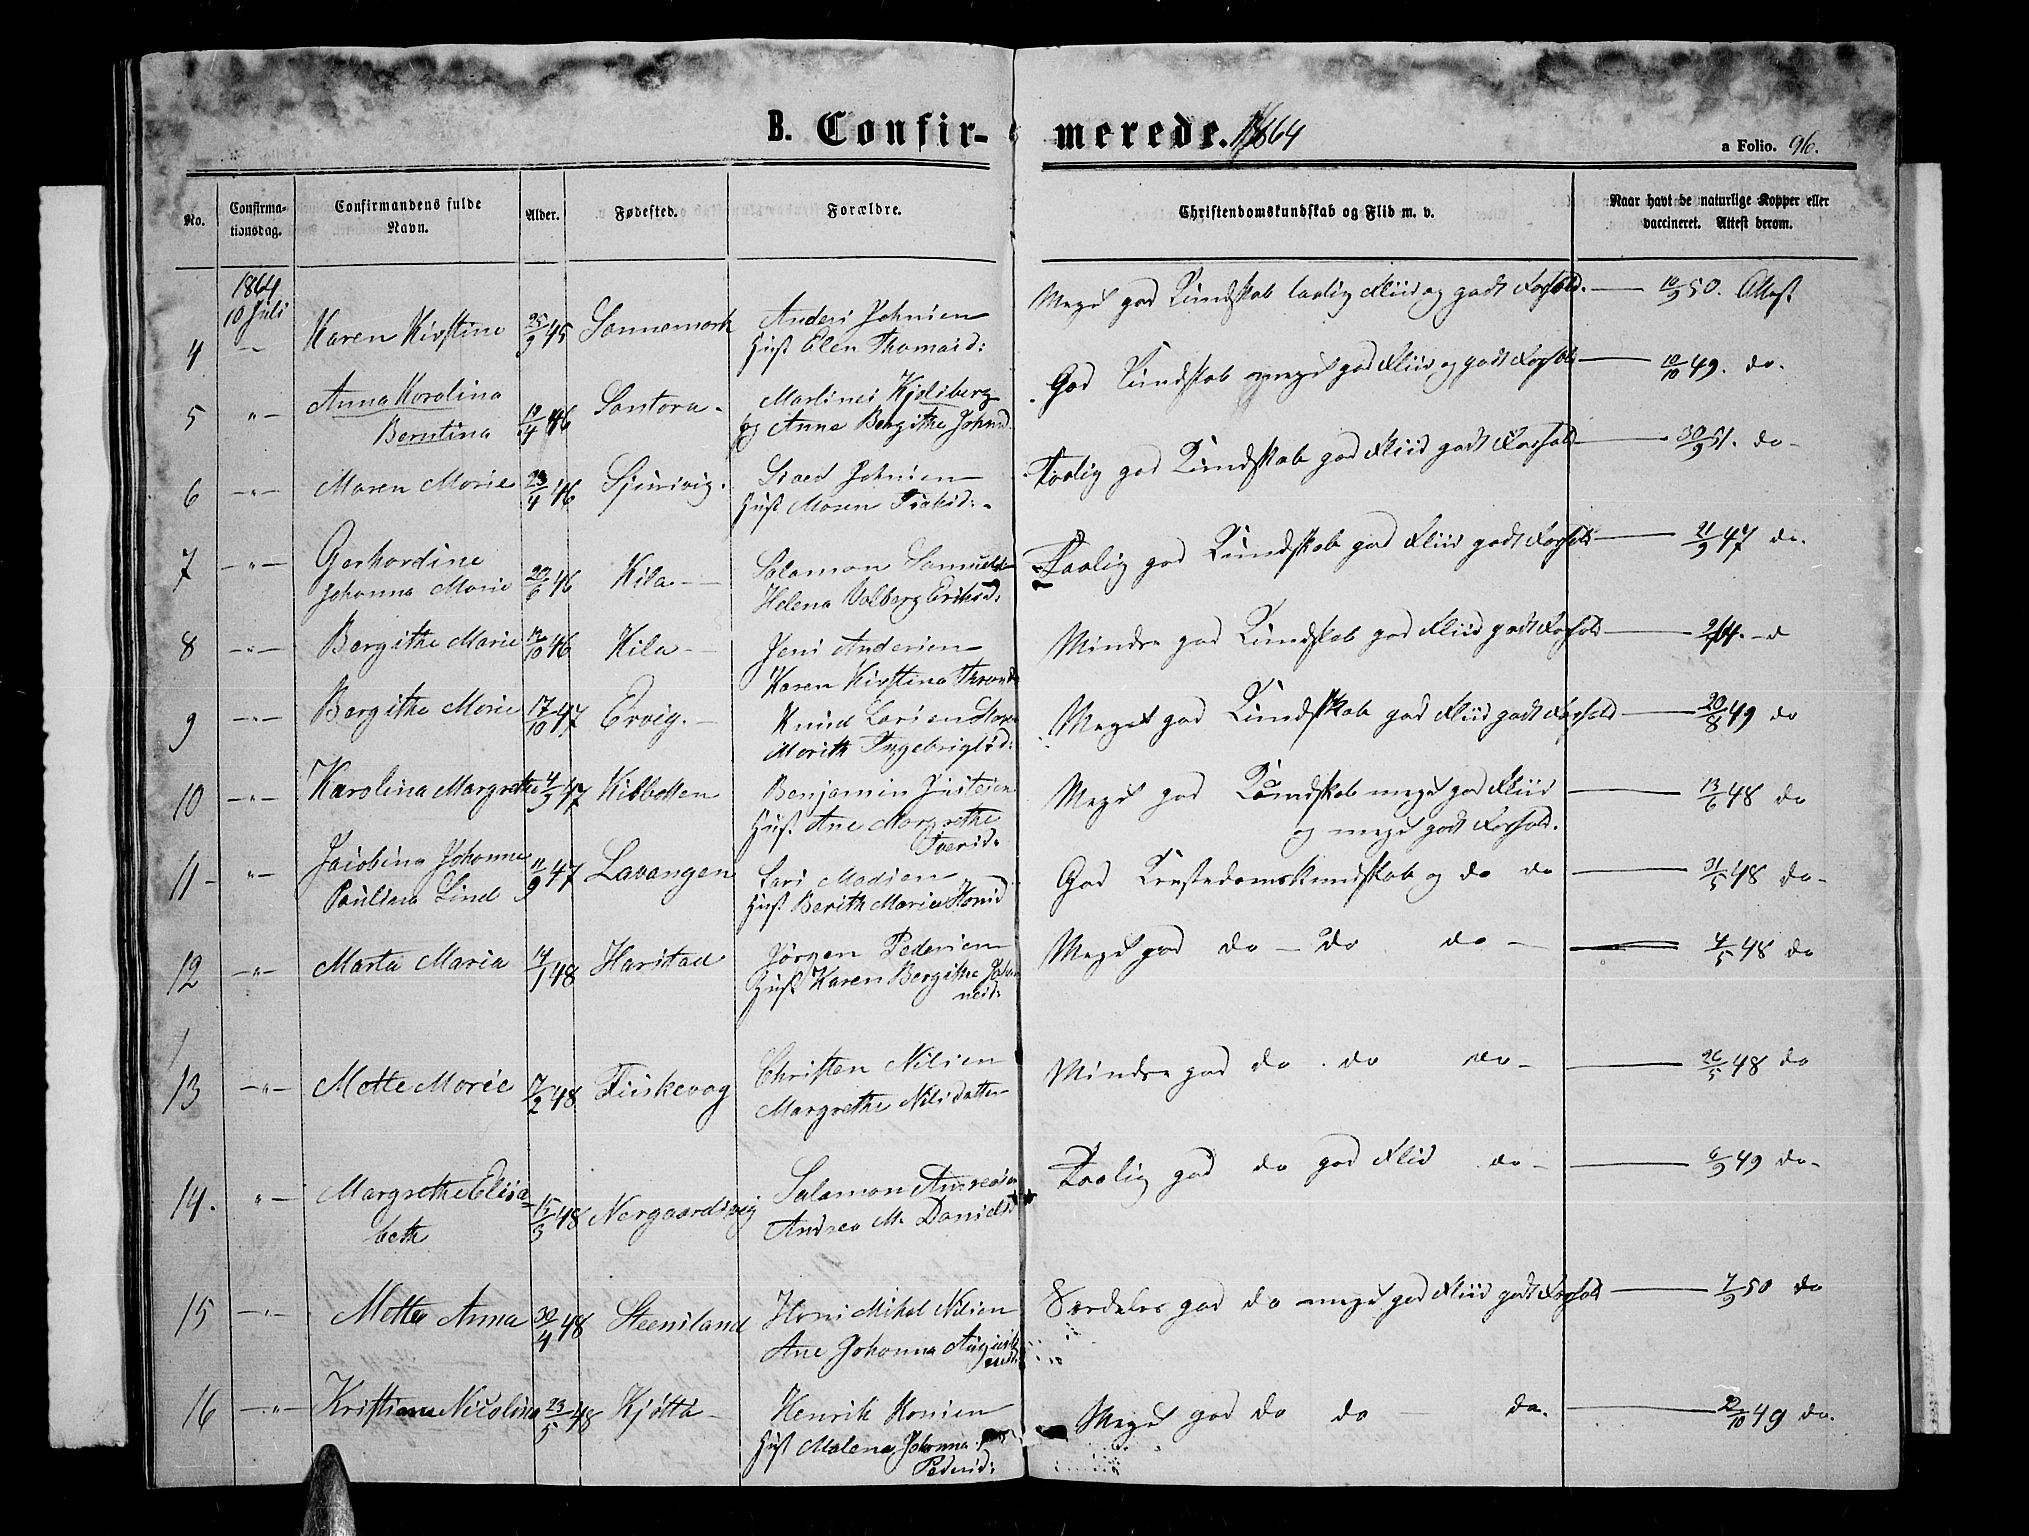 B. Confirmerede. 1864
a Folio. 96.
No. Confirmationsdag. Confirmandens fulde Navn. Alder. Fødested. Forældre. Christendomskundskab og Flid m. v. Naar havt de naturlige Kopper eller vaccineret. Attest derom.
1864
10 Juli
4 -"- Karen Kirstine 25/9 45 Sannemark Anders Johnsen Meget god Kundskab taalig Fliid og godt Forhold. — 10/9 50. Attest
Hust Elen Thomasd:
5 "- Anna Karolina 10/4 46 Santora. Martines Kjilsberg God Kundskab meget god Fliid og godt Forhold — 10/10 49. do.
Berntina og Anne Bergithe Johnsd.
6 -"- Maren Marie 23/4 46 Sjursvig. Johnsen Taalig god Kundskab god Fliid godt Forhold — 30/9 51. do-
Hust Maren Isaksd:
7 -"- Gerhardine 29/6 46 Kila — Salamon Samuels Taalig god Kundskab god Fliid godt Forhold — 21/9 47 do.
Johanna Marie Helena Volberg Eriksd:
8 -"- Bergithe Marie 12/10 46 Kila — Jens Andersen Mindre god Kundskab god Fliid godt Forhold —
Karen Kirstina
9 -"- Bergithe Marie 17/10 47 Ervig. — Knud Larsen Meget god Kundskab god Fliid godt Forhold — 20/8 49 do
Merith Ingebrigtsd:
10 -"- Karolina Margrethe 4/9 47 Kilbotten Benjamin Justesen Meget god Kundskab meget god Fliid — 13/6 48 do
Hust Ane Margrethe og meget godt Forhold.
Iversd:
11- "- Jacobina Johanna 11/9 47 Lavangen Lars Madsen God Kristedomskundskab og do do — 31/5 48 do-
Paulina Lind Hust Berith Maria Hansd
12 -"- Marta Maria 14/1 48 Harstad Jørgen Pedersen Meget god do - do do - — 4/5 48 do
Hust Karen Bergithe Johan
nesd:
13 -"- Mette Marie 7/2 48 Fuskevog Christen Nilsen Mindre god do . do do- — 26/5 48 do
Margrethe Nilsdatter
14. "- Margrethe Elisa= 15/3 48 Nergaardsvig Salamon Andreasen Taalig god do god Fliid do- — 6/9 49 do-
beth Andrea M. Danielsd
15 -"- Mette Anna 30/4 48 Steensland Hans Mikal Nilsen Særdeles god do meget god Fliid godt Forhold — 7/9 50 do
Ane Johanna
16 -"- Kristiane Nicolina 23/5 48 Kjøtta — Henrik Hansen Meget god do do do. — 2/10 49 do.
Hust Malena Johanna
Pedersd: